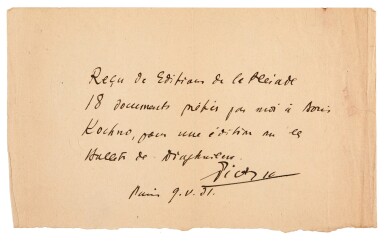 Reçu de Editions de la Pleiade
18 documents prêtés par moi à Boris
Kochno, pour une édition sur les
Ballets de Diaghilew.
Picasso
Paris 9.V.51.